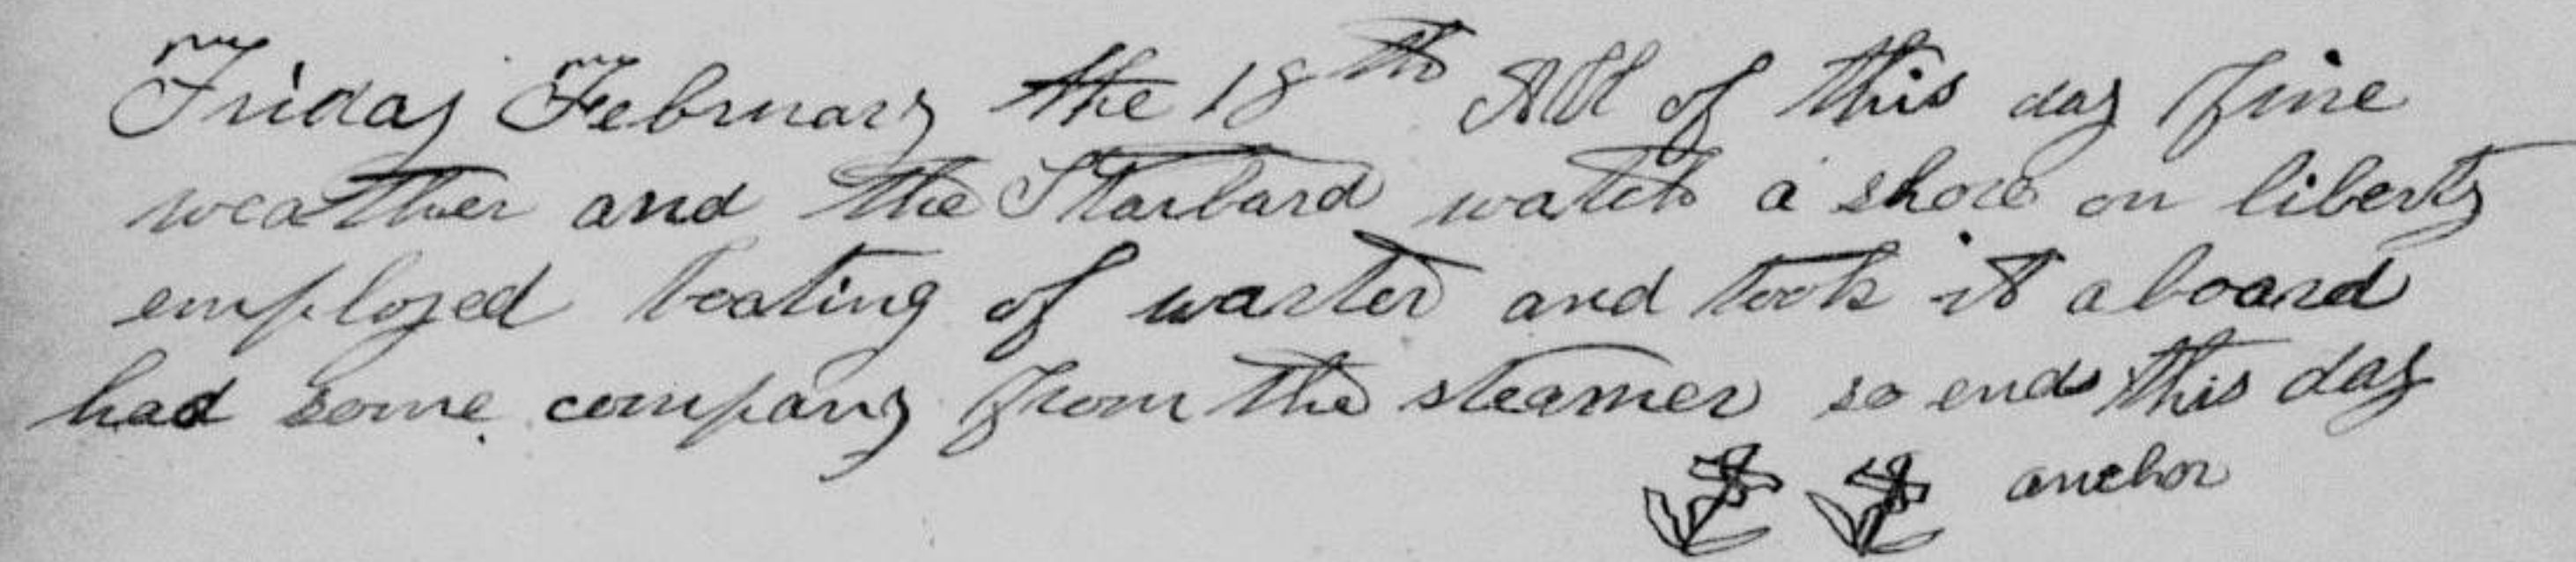 Friday February the 18th All of this day fine
weather and the Starbard watch a shore on liberty
employed boating of warter and took it aboard
had some company from the steamer so ends this day
anchor